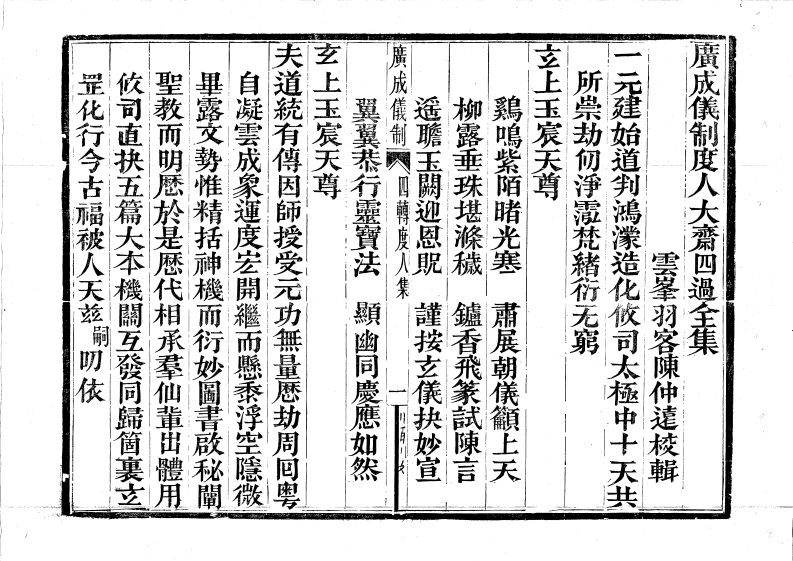 廣成儀制度人大齋四過全集
雲峯羽客陳仲遠校輯
一元建始道判鴻濛造化攸司太極中十天共
所崇劫仞淨澐梵緒衍无窮
玄上玉宸天尊
鷄鳴紫陌曙光寒　肅展朝儀籲上天
柳露垂珠堪滌穢　鑪香飛篆試陳言
遥瞻玉闕迎恩貺　謹按玄儀抉妙宣
翼翼恭行靈寶法　顯幽同慶應如然
廣成儀制　四轉度人集　一
玄上玉宸天尊
夫道統有傳因師授受元功無量歷劫周囘粤
自凝雲成象運度宏開繼而懸黍浮空隱微
畢露文勢惟精括神機而衍妙圖書啟秘闡
聖教而明歷於是歷代相承羣仙輩出體用
攸司直抉五篇大本機關互發同歸箇裏玄
罡化行今古福被人天兹嗣叨依